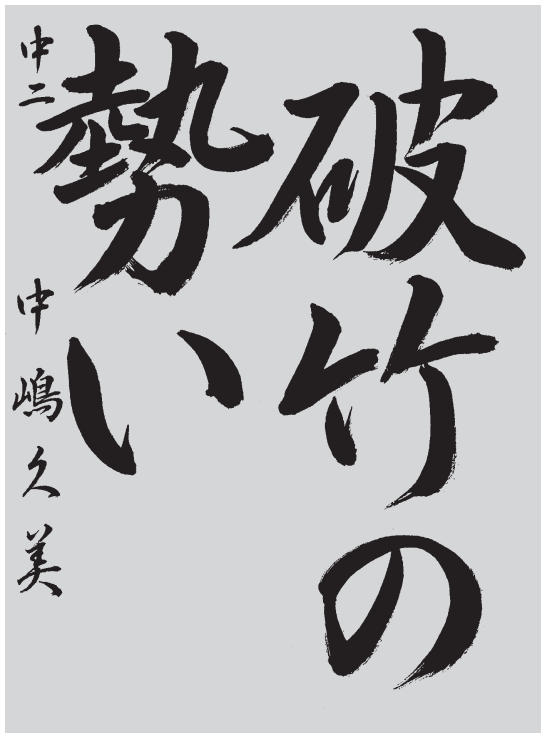 破竹の
勢い
中二 中嶋久美